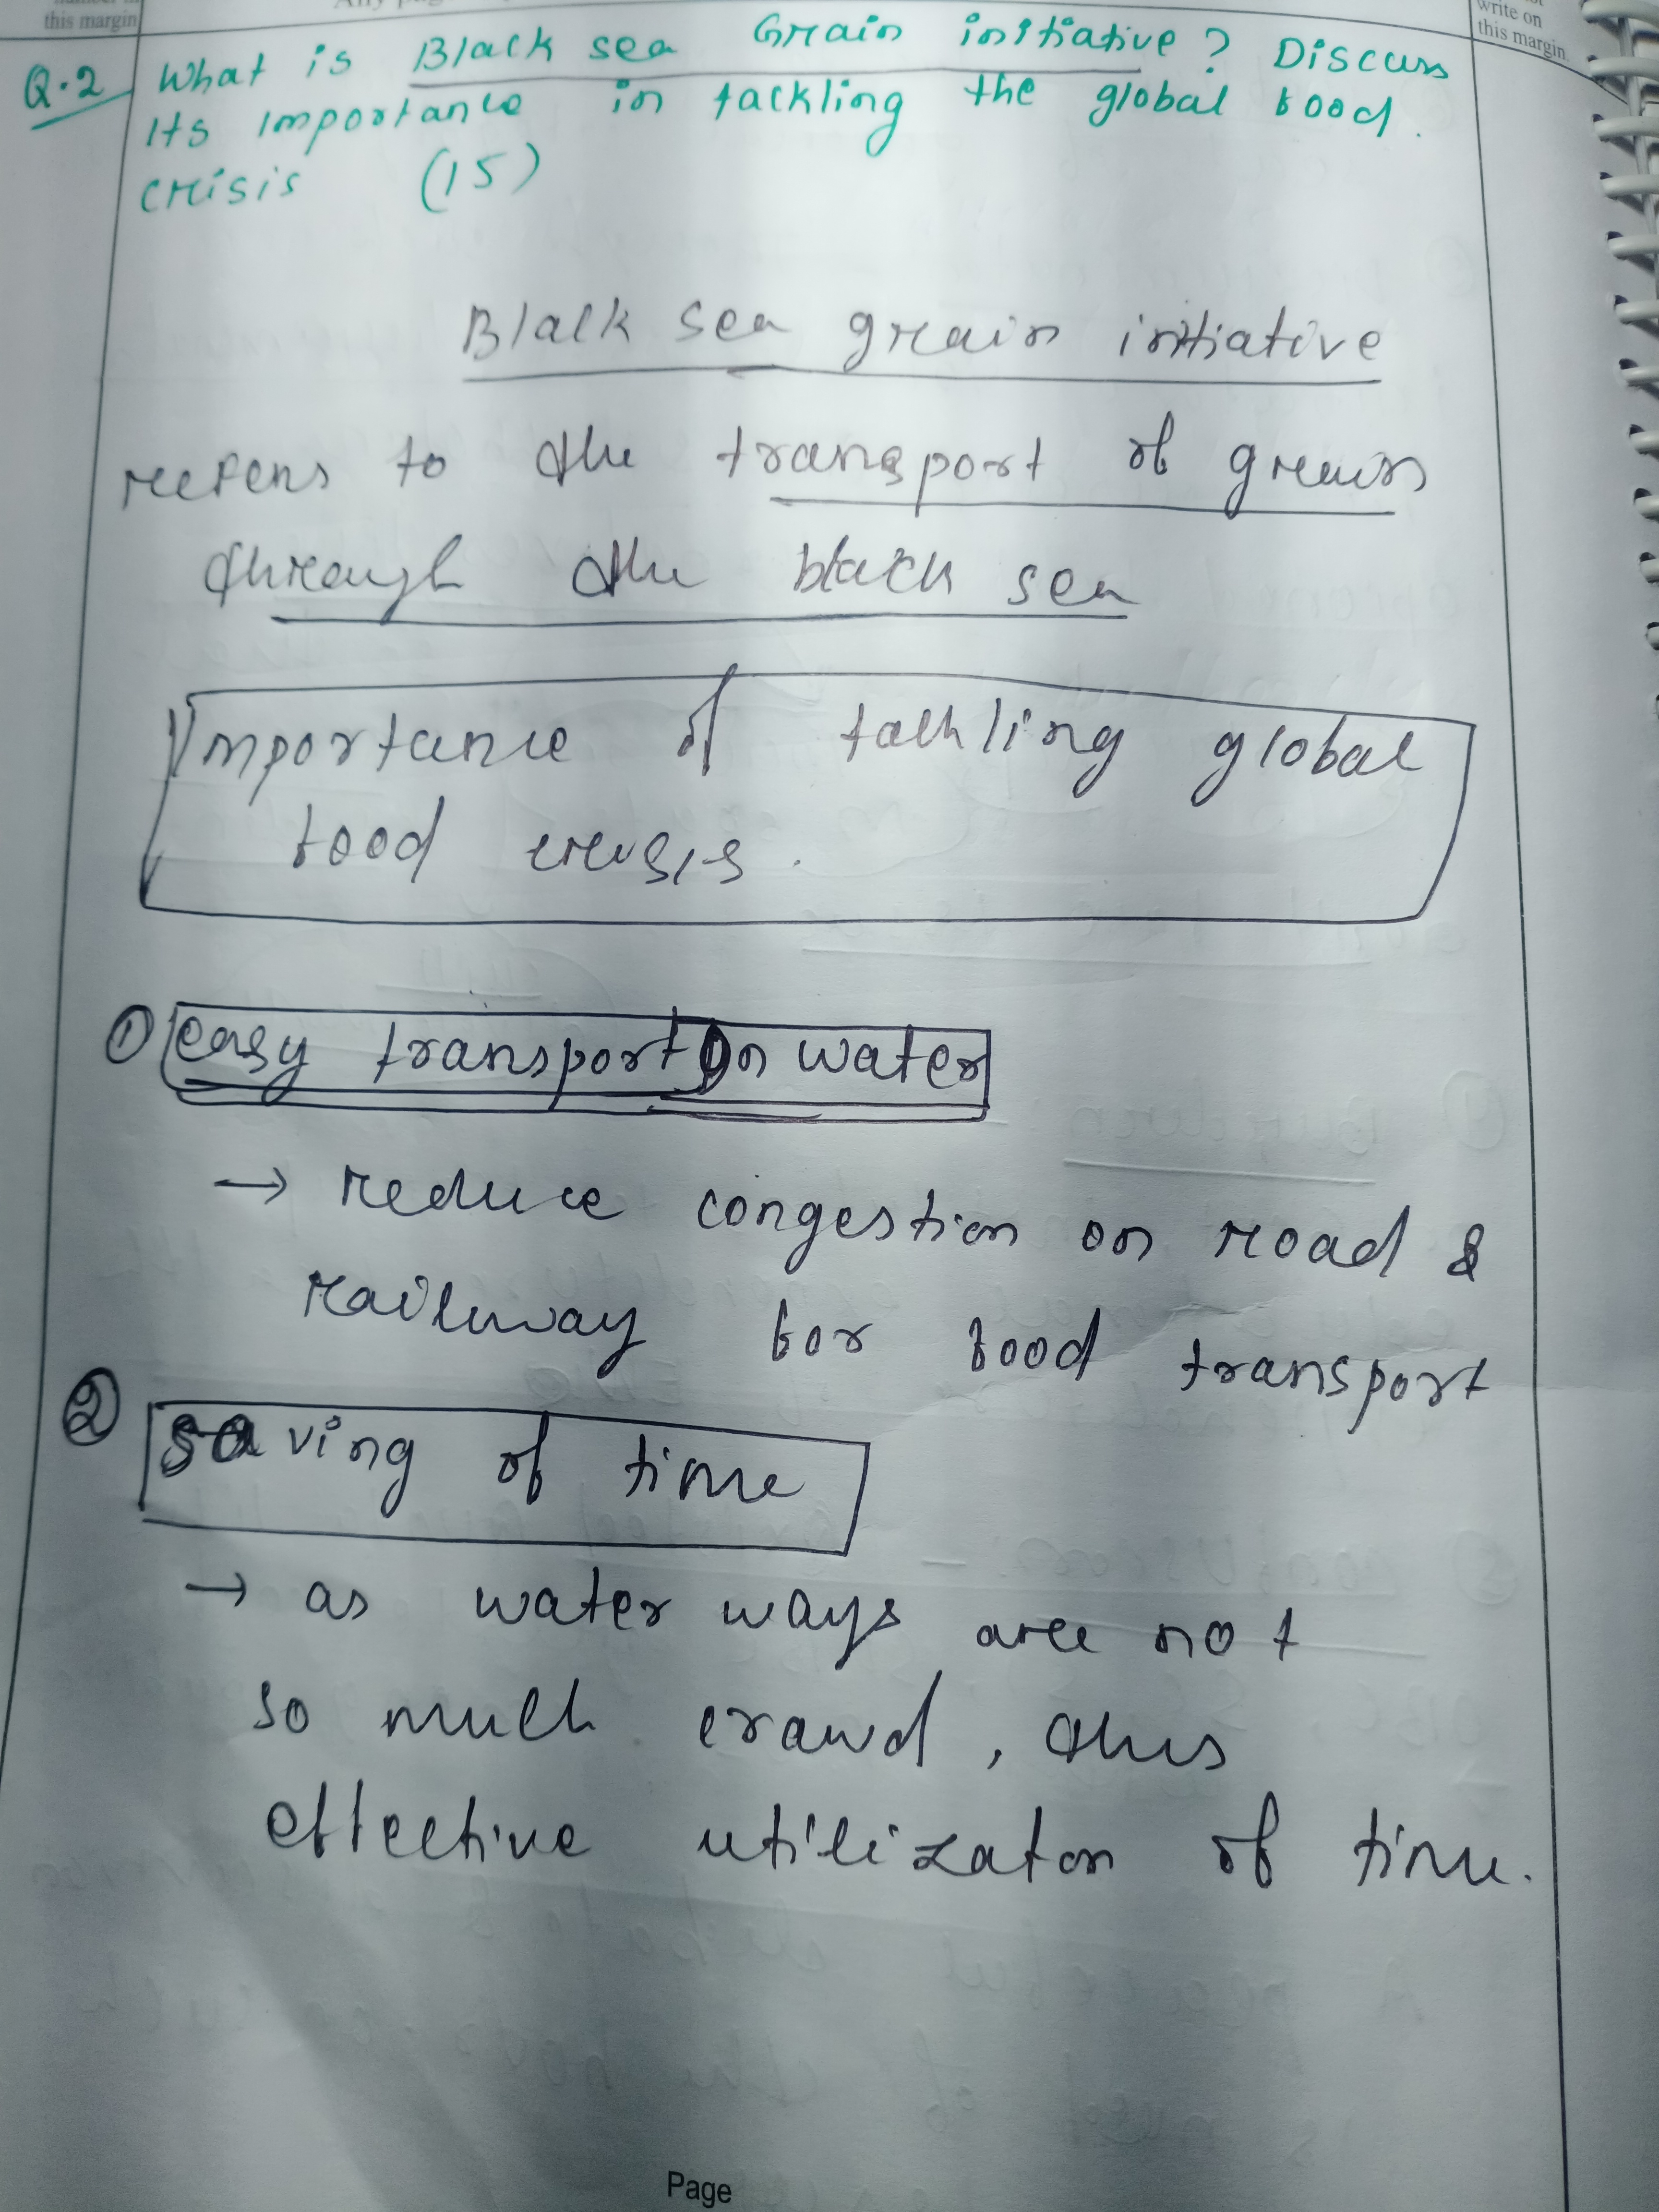 this margin
write on
this margin.
Q.2 What is Black sea Grain initiative? Discuss
Its importance in tackling the global food
crisis (15)
Black sea grain initiative
refers to the transport of grain
through the black sea
Importance of tackling global
food crisis.
① easy transport on water
→ reduce congestion on road &
railway for food transport
② saving of time
→ as water ways are not
so much crawd, thus
effective utilizaton of time.
Page